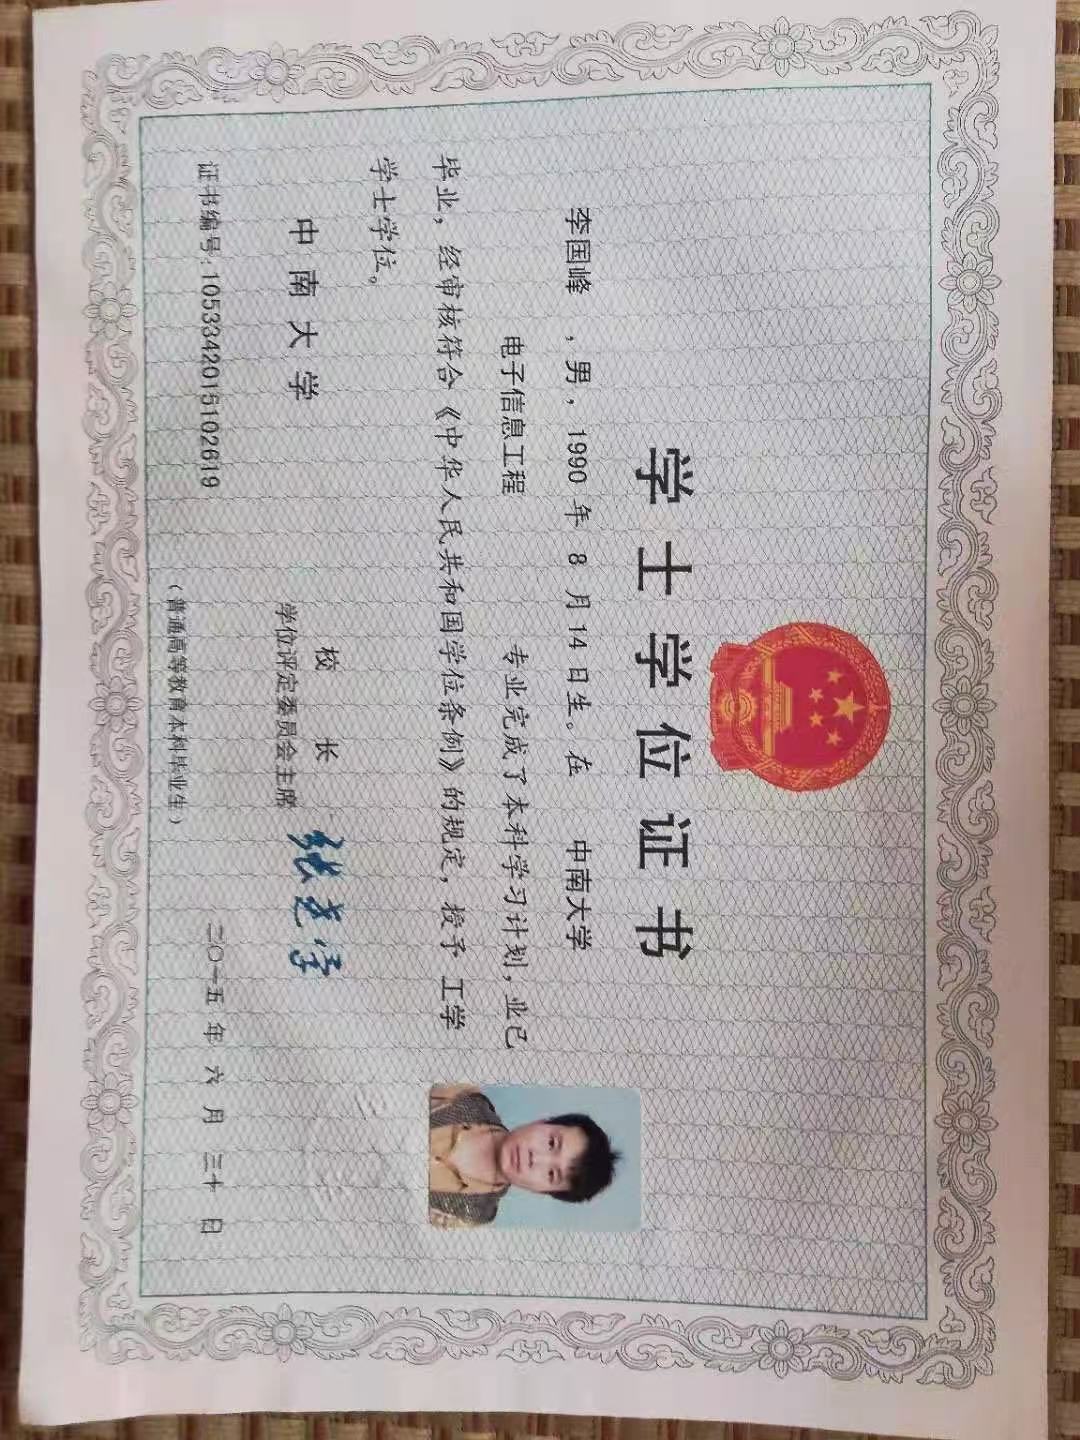 学士学位证书
李国峰 ，男，1990 年 8 月 14 日生。在 中南大学
电子信息工程 专业完成了本科学习计划，业已
毕业，经审核符合《中华人民共和国学位条例》的规定，授予 工学
学士学位。
中南大学
校 长
学位评定委员会主席
张尧学
证书编号：1053342015102619
二〇一五 年 六 月 三十 日
（普通高等教育本科毕业生）